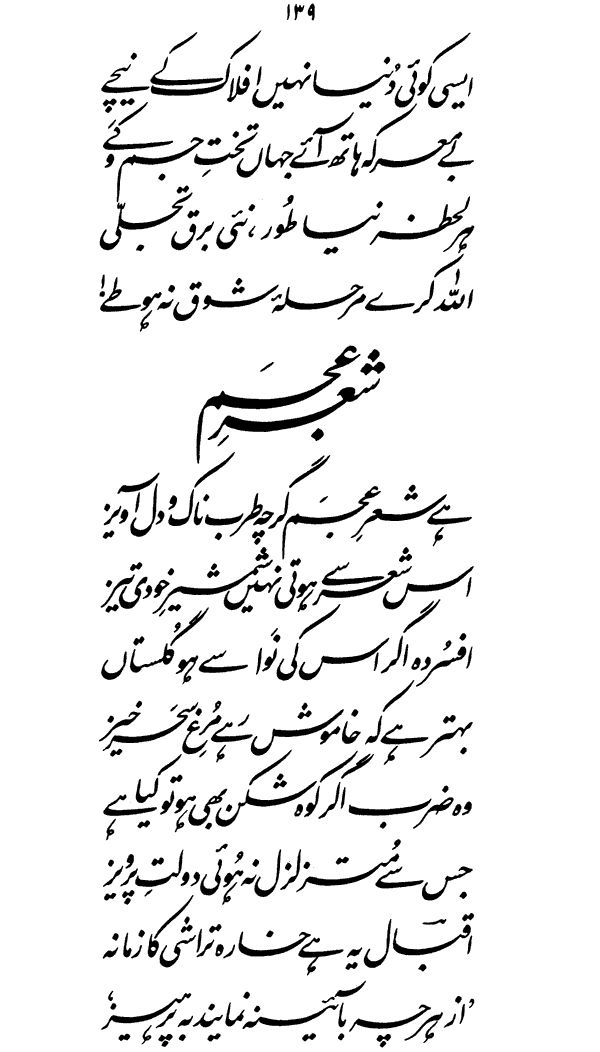 ۱۳۹
ایسی کوئی دُنیا نہیں افلاک کے نیچے
بے معرکہ ہاتھ آئے جہاں تختِ جم و کَے
ہر لحظہ نیا طُور، نئی برقِ تجلّی
اللہ کرے مرحلۂ شوق نہ ہو طے!
شعرِ عجَم
ہے شعرِ عجَم گرچہ طرب ناک و دل آویز
اس شعر سے ہوتی نہیں شمشیرِ خودی تیز
افسُردہ اگر اس کی نَوا سے ہو گُلستاں
بہتر ہے کہ خاموش رہے مُرغِ سحَر خیز
وہ ضرب اگر کوہ شکن بھی ہو تو کیا ہے
جس سے مُتزلزل نہ ہُوئی دولتِ پرویز
اقبالؔ یہ ہے خارہ تراشی کا زمانہ
'از ہر چہ بآئینہ نمایند بہ پرہیز'